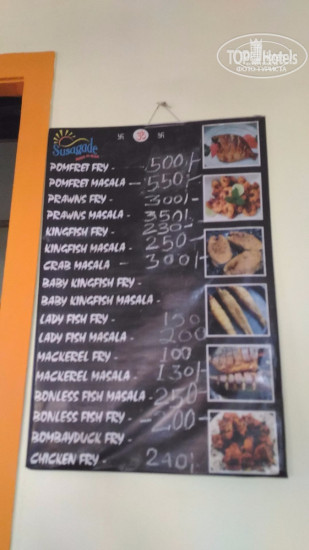 TOPHotels
Susegade
POMFRET FRY - 500/-
POMFRET MASALA - 550/-
PRAWNS FRY - 300/-
PRAWNS MASALA - 350/-
KINGFISH FRY - 230-
KINGFISH MASALA - 250-
CRAB MASALA - 300/-
BABY KINGFISH FRY -
BABY KINGFISH MASALA -
LADY FISH FRY - 150
LADY FISH MASALA - 200
MACKEREL FRY - 100
MACKEREL MASALA - 130/-
BONLESS FISH MASALA - 250-
BONLESS FISH FRY - 200-
BOMBAYDUCK FRY -
CHICKEN FRY - 240/-